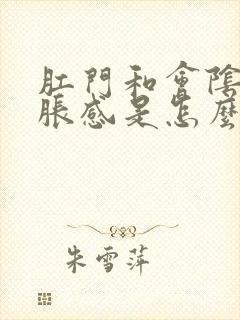 肛門和會陰
脹感是怎麼
朱雪萍